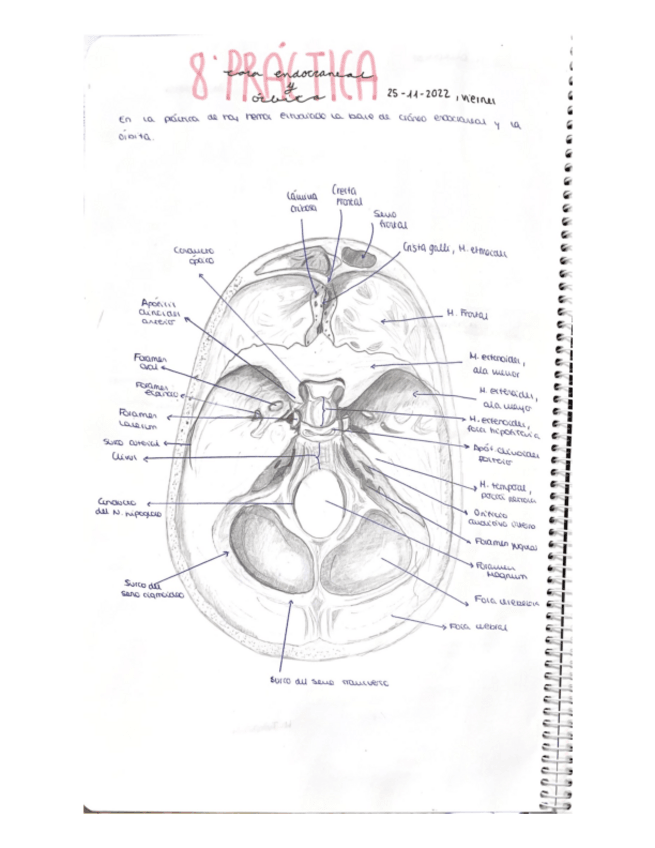 8ª PRÁCTICA
cara endocraneal
y
órbita
25-11-2022, viernes
En la práctica de hoy hemos estudiado la base de cráneo endocraneal y la
órbita.
Lámina
cribosa
Cresta
frontal
Seno
frontal
Crista galli, H. etmoides
Conducto
óptico
H. Frontal
Apófisis
clinoides
anterior
H. esfenoides,
ala menor
Foramen
oval
H. esfenoides,
ala mayor
Foramen
espinoso
H. esfenoides,
fosa hipofisaria
Foramen
lacerum
Apóf. clinoides
posterior
Surco arterial
Clivus
H. temporal,
porción petrosa
Conducto
del N. hipogloso
Orificio
auditivo interno
Foramen yugular
Foramen
Magnum
Surco del
seno sigmoideo
Fosa cerebelosa
Fosa cerebral
Surco del seno transverso